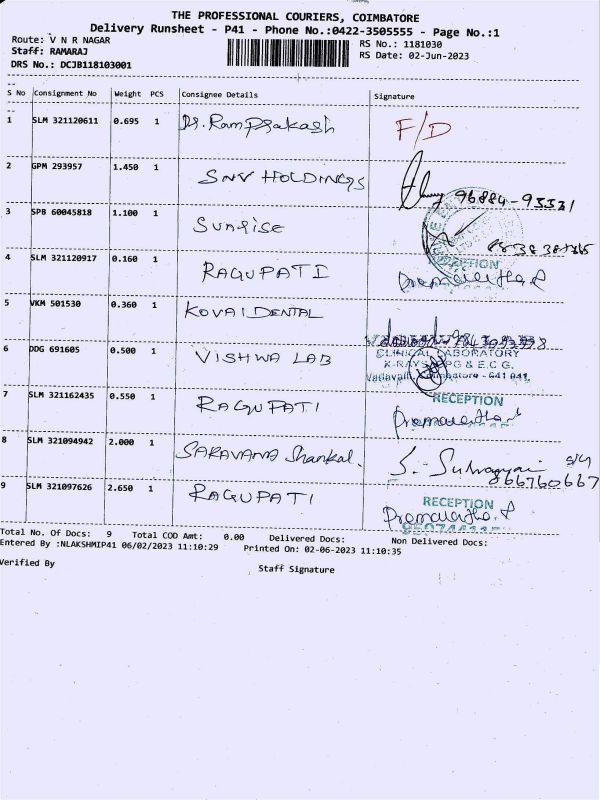 THE PROFESSIONAL COURIERS, COIMBATORE
Delivery Runsheet - P41 - Phone No.:0422-3505555 - Page No.:1
Route: V N R NAGAR
Staff: RAMARAJ
DRS No.: DCJB118103001
RS No.: 1181030
RS Date: 02-Jun-2023
S No Consignment No Weight PCS Consignee Details Signature
1 SLM 321120611 0.695 1 Dr. Ramprakash F/D
2 GPM 293957 1.450 1 SNV HOLDINGS 96884-93331
3 SPB 60045818 1.100 1 Sunrise
4 SLM 321120917 0.160 1 RAGUPATI RECEPTION
5 VKM 501530 0.360 1 KOVAI DENTAL
6 DDG 691605 0.500 1 VISHWA LAB
CLINICAL LABORATORY
& E.C.G.
Coimbatore - 641 041
7 SLM 321162435 0.550 1 RAGUPATI RECEPTION
8 SLM 321094942 2.000 1 SARAVANA Shankar.
9 SLM 321097626 2.650 1 RAGUPATI RECEPTION
Total No. Of Docs: 9 Total COD Amt: 0.00 Delivered Docs: Non Delivered Docs:
Entered By :NLAKSHMIP41 06/02/2023 11:10:29 Printed On: 02-06-2023 11:10:35
Verified By
Staff Signature